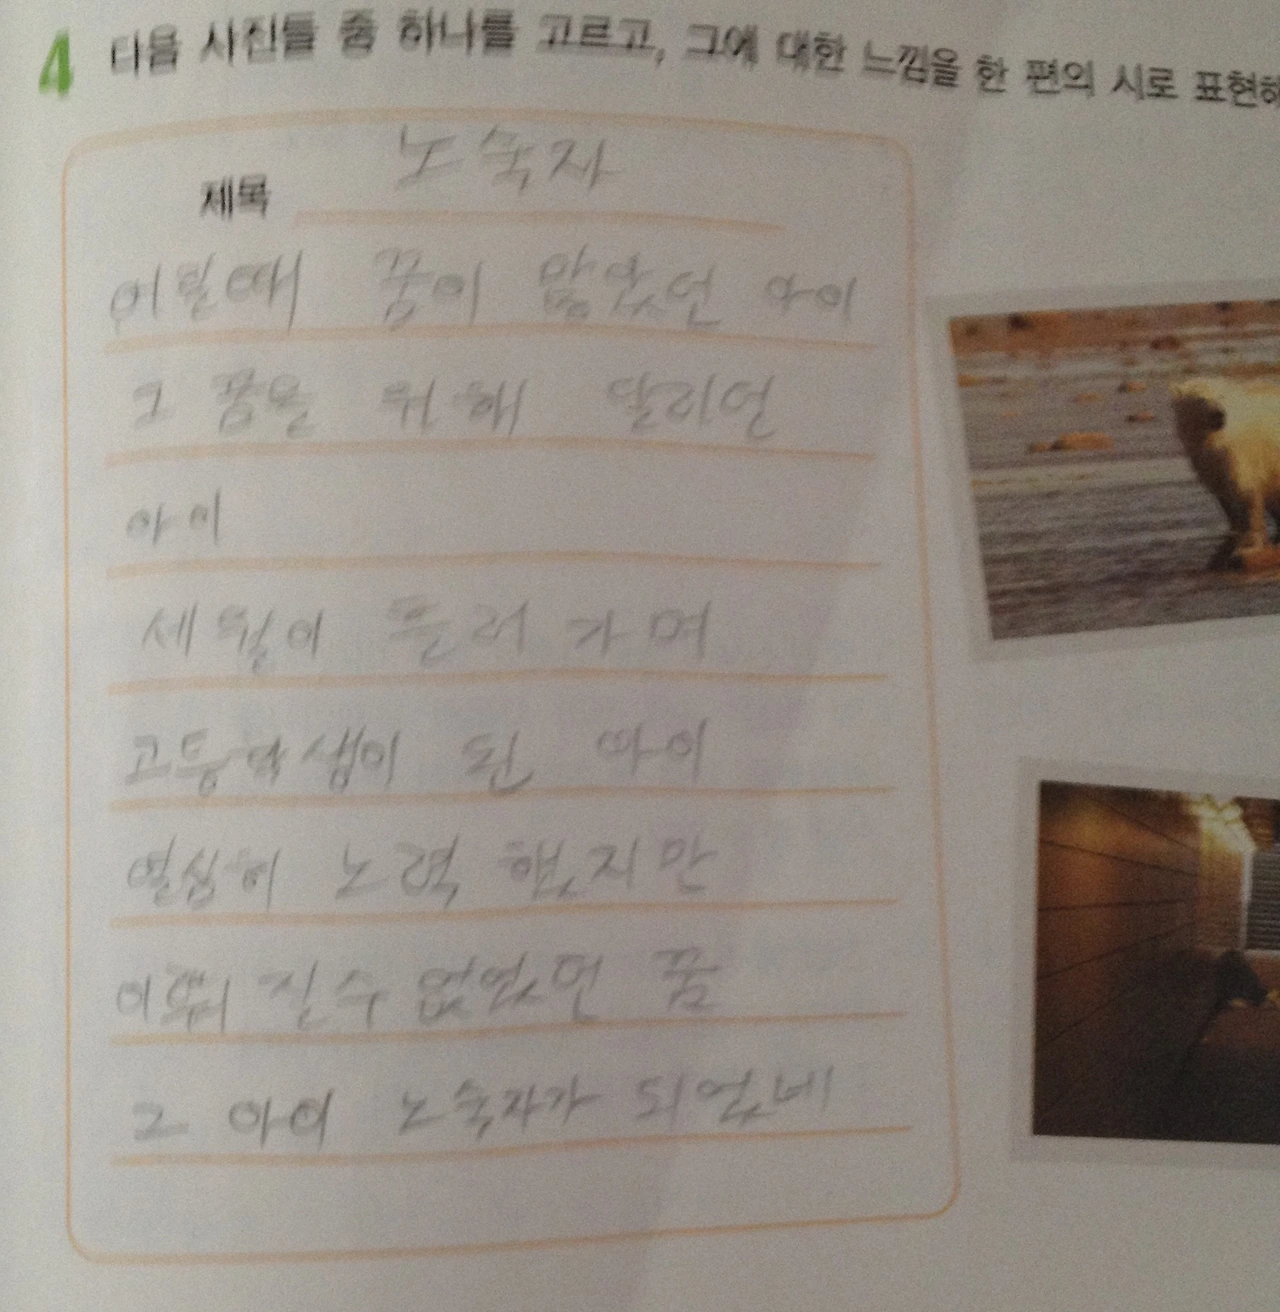 4 다음 사진들 중 하나를 고르고, 그에 대한 느낌을 한 편의 시로 표현하
제목 노숙자
어릴때 꿈이 많았던 아이
그 꿈을 위해 달리던
아이
세월이 흘러가며
고등학생이 된 아이
열심히 노력 했지만
이뤄 질수 없었던 꿈
그 아이 노숙자가 되었네